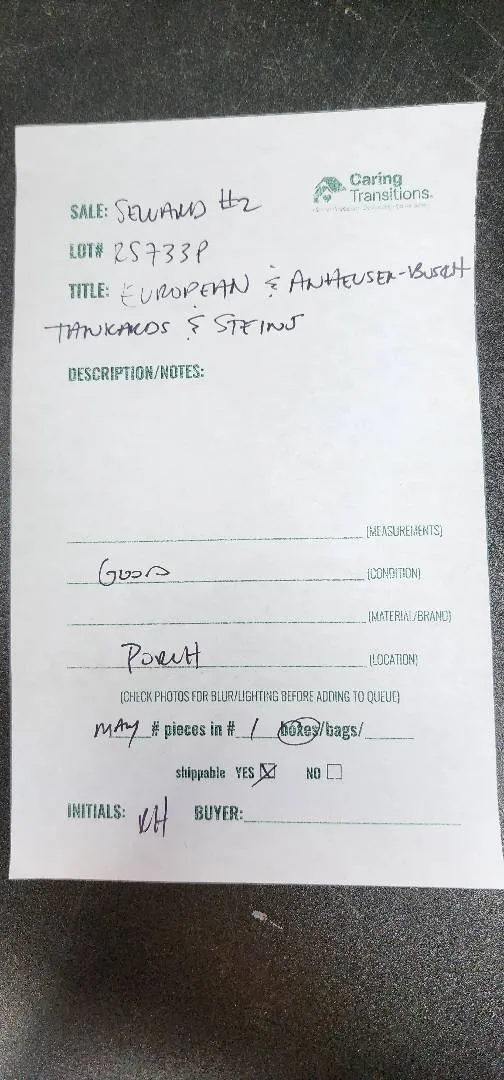 Caring
Transitions.
SALE: SEWARD #2
LOT# RS733P
TITLE: EUROPEAN & ANHEUSER-BUSCH
TANKARDS & STEINS
DESCRIPTION/NOTES:
(MEASUREMENTS)
GOOD (CONDITION)
(MATERIAL/BRAND)
PORCH (LOCATION)
(CHECK PHOTOS FOR BLUR/LIGHTING BEFORE ADDING TO QUEUE)
MAY # pieces in # 1 boxes/bags/
shippable YES NO
INITIALS: KH BUYER: